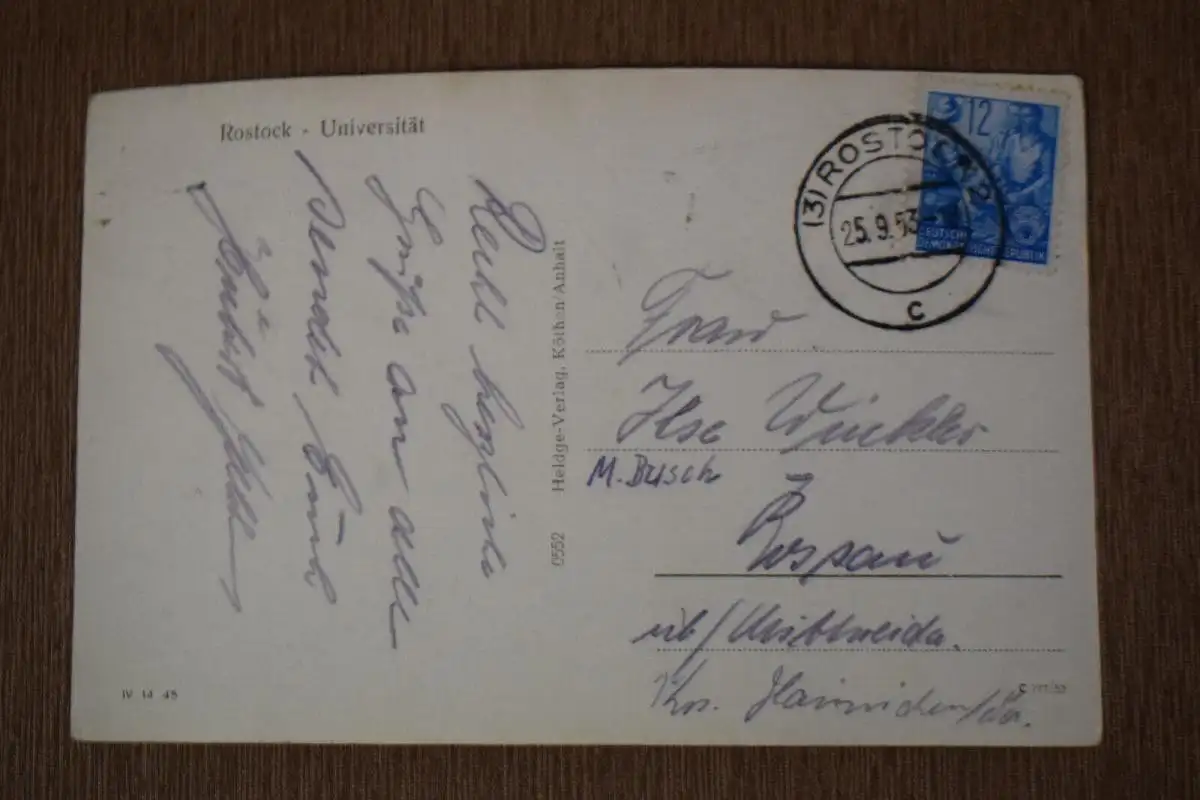 Rostock - Universität
Recht herzliche
Grüße an alle
sendet Euch
0552 Heldge-Verlag, Köthen/Anhalt
IV 14 45
12
DEUTSCHE
DEMOKRATISCHE REPUBLIK
(3) ROSTOCK 2
25.9.53
c
Frau
Ilse Winkler
M. Busch
üb/Mittweida.
Krs. Hainichen/Sa.